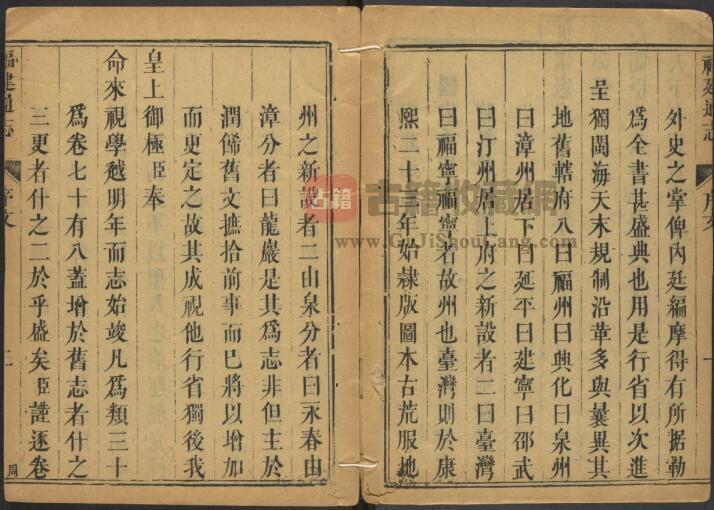 福建通志
序文
一
外史之掌俾內廷編摩得有所据勒
爲全書甚盛典也用是行省以次進
呈獨閩海天末規制沿革多與曩異其
地舊轄府八曰福州曰興化曰泉州
曰漳州居下曰延平曰建寧曰邵武
曰汀州居上府之新設者二曰臺灣
曰福寧福寧者故州也臺灣則於康
熙二十三年始隸版圖本古荒服地
州之新設者二由泉分者曰永春由
漳分者曰龍巖是其爲志非但主於
潤餙舊文摭拾前事而已將以增加
而更定之故其成視他行省獨後我
皇上御極臣奉
命來視學越明年而志始竣凡爲類三十
爲卷七十有八蓋增於舊志者什之
三更者什之二於乎盛矣臣謹逐卷
福建通志
序文
二
周
古籍
古籍收藏網
www.GuJiShouCang.com